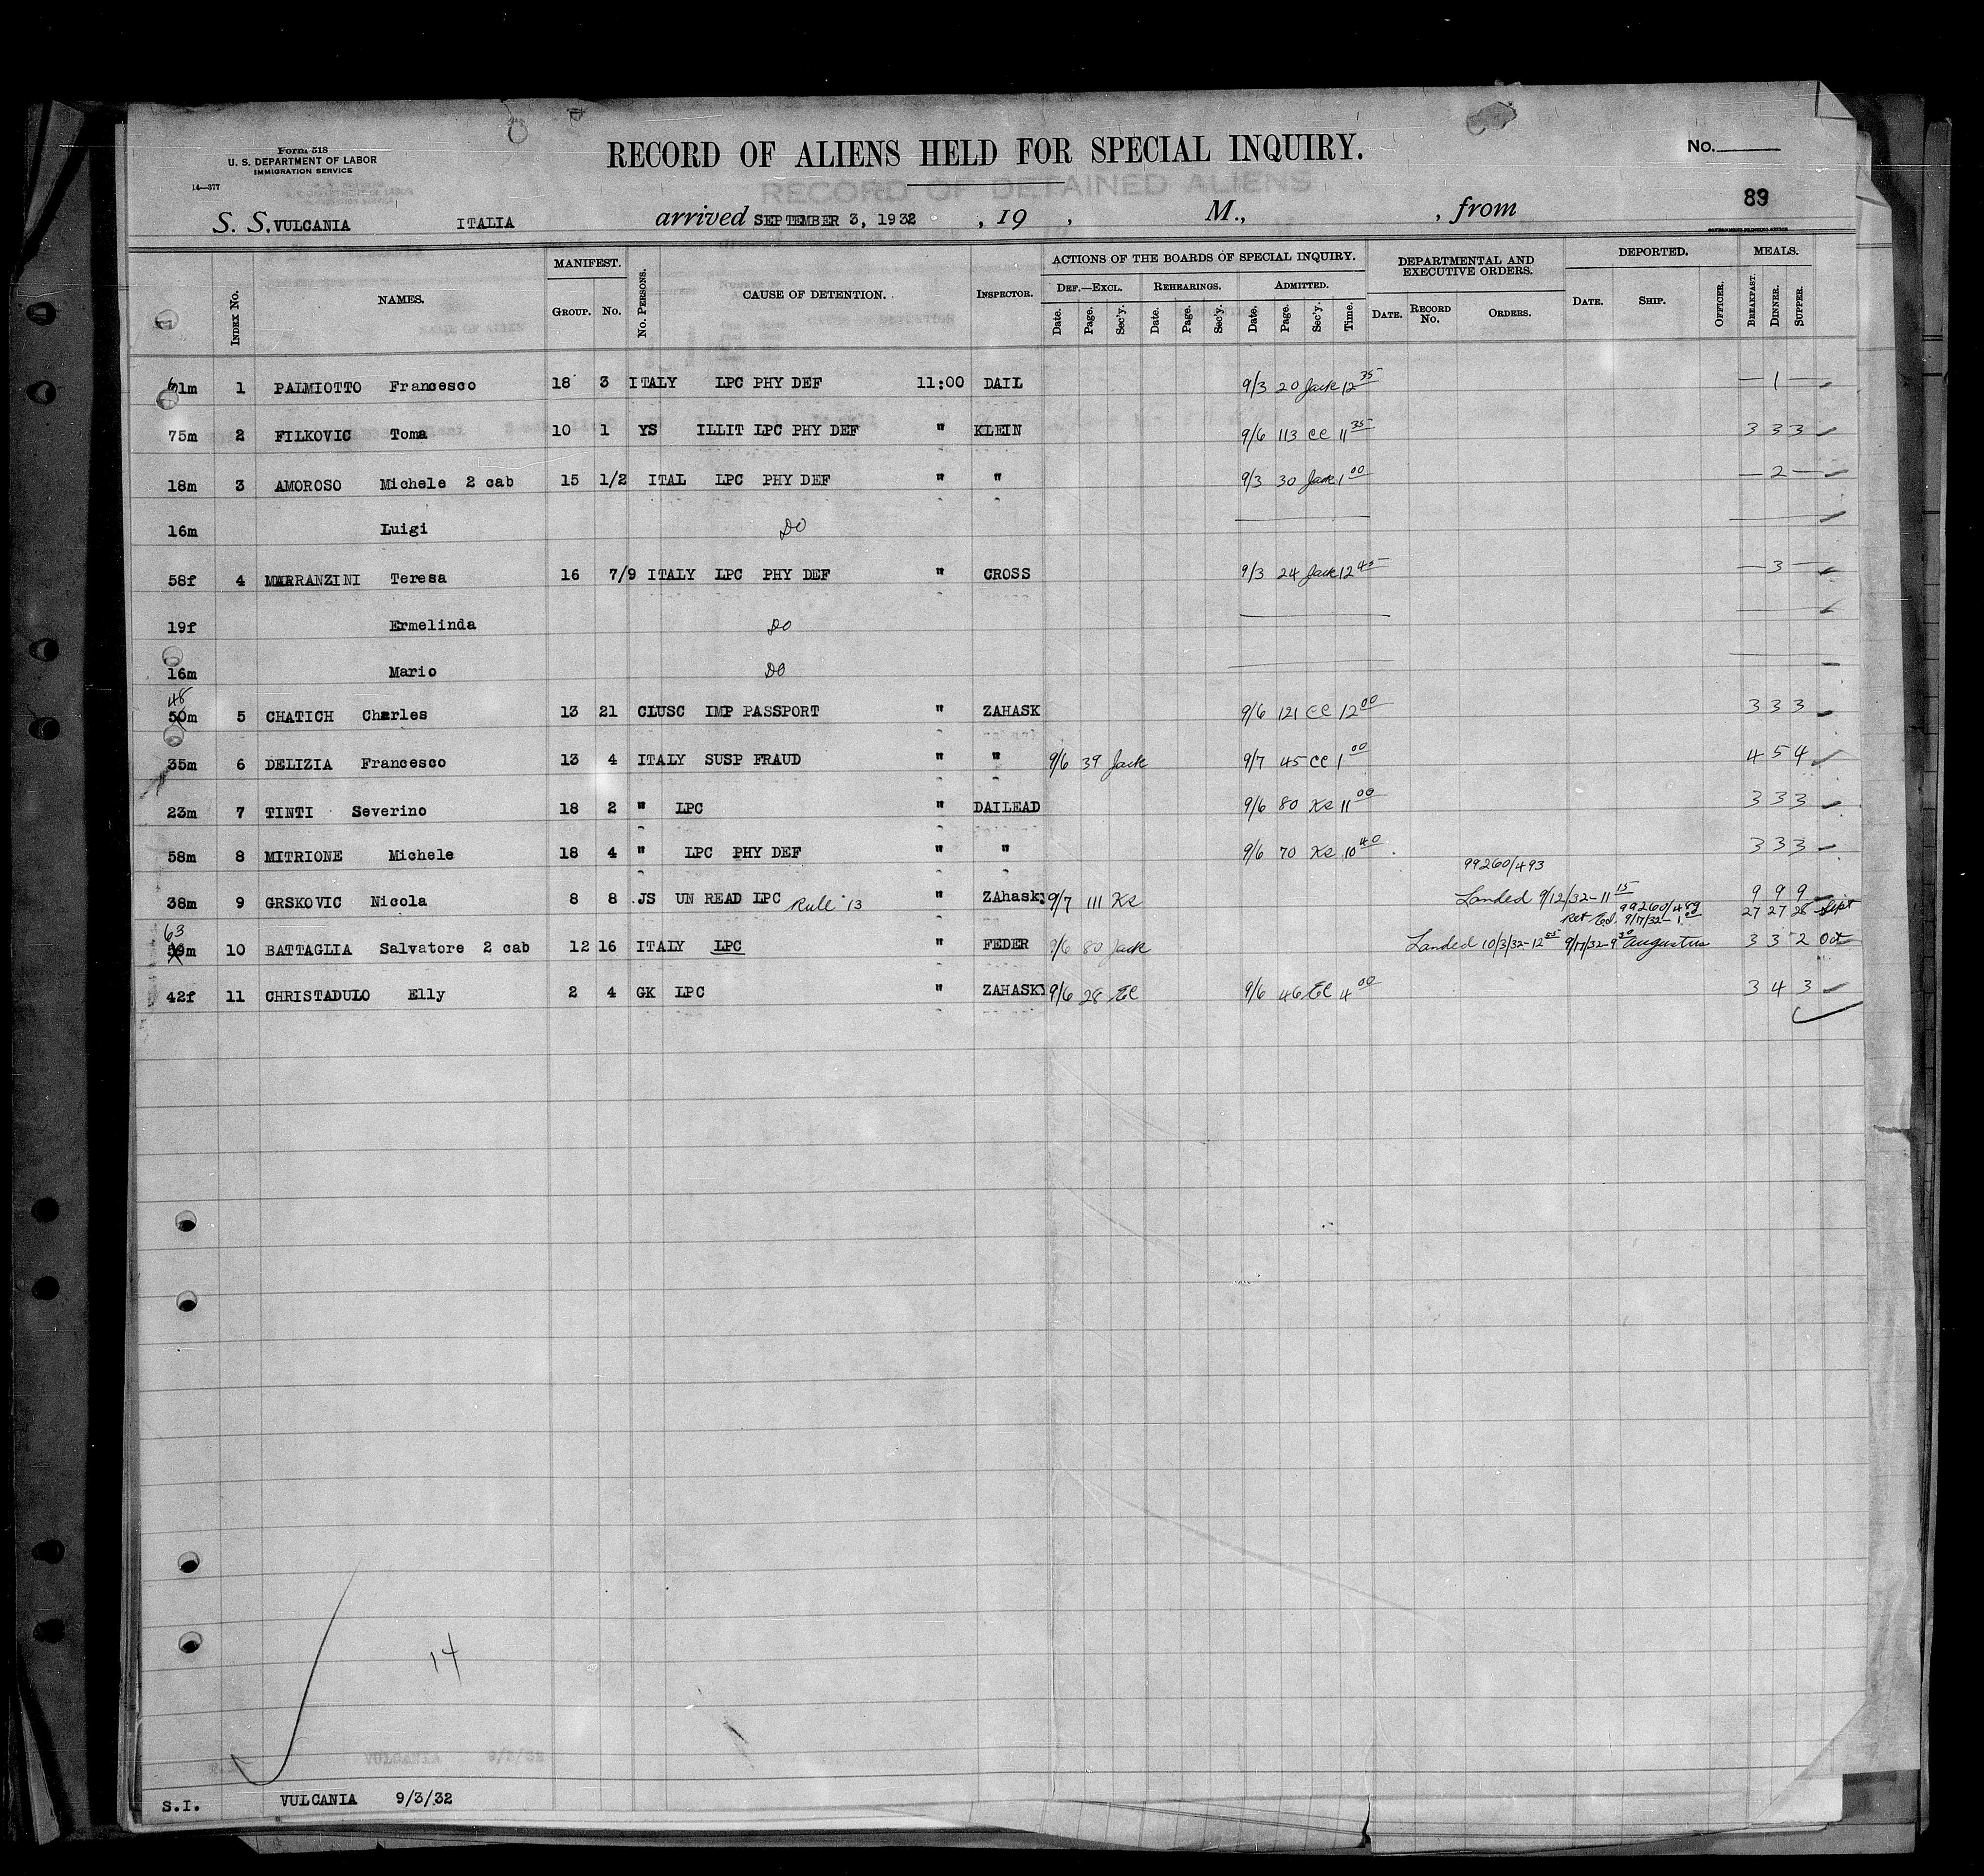 Form 518
U. S. DEPARTMENT OF LABOR
IMMIGRATION SERVICE
14—377
RECORD OF ALIENS HELD FOR SPECIAL INQUIRY.
No.
RECORD OF DETAINED ALIENS
89
S. S. VULCANIA ITALIA arrived SEPTEMBER 3, 1932 , 19 , M., , from
GOVERNMENT PRINTING OFFICE
INDEX No. NAMES. MANIFEST. GROUP. No. No. PERSONS. CAUSE OF DETENTION. INSPECTOR. ACTIONS OF THE BOARDS OF SPECIAL INQUIRY. DEF.—EXCL. Date. Page. Sec'y. REHEARINGS. Date. Page. Sec'y. ADMITTED. Date. Page. Sec'y. Time. DEPARTMENTAL AND EXECUTIVE ORDERS. DATE. RECORD No. ORDERS. DEPORTED. DATE. SHIP. OFFICER. MEALS. BREAKFAST. DINNER. SUPPER.
61m 1 PALMIOTTO Francesco 18 3 ITALY LPC PHY DEF 11:00 DAIL 9/3 20 Jack 12 35 — 1 —
75m 2 FILKOVIC Toma 10 1 YS ILLIT LPC PHY DEF " KLEIN 9/6 113 CC 11 35 3 3 3
18m 3 AMOROSO Michele 2 cab 15 1/2 ITAL LPC PHY DEF " " 9/3 30 Jack 1 00 — 2 —
16m Luigi DO
58f 4 MARRANZINI Teresa 16 7/9 ITALY LPC PHY DEF " CROSS 9/3 24 Jack 12 45 — 3 —
19f Ermelinda DO
16m Mario DO
48
50m 5 CHATICH Charles 13 21 CLUSC IMP PASSPORT " ZAHASK 9/6 121 CC 12 00 3 3 3
35m 6 DELIZIA Francesco 13 4 ITALY SUSP FRAUD " " 9/6 39 Jack 9/7 45 CC 1 00 4 5 4
23m 7 TINTI Severino 18 2 " LPC " DAILEAD 9/6 80 Ks 11 00 3 3 3
58m 8 MITRIONE Michele 18 4 " LPC PHY DEF " " 9/6 70 Ks 10 40 3 3 3
99260/493
38m 9 GRSKOVIC Nicola 8 8 JS UN READ LPC Rule 13 " ZAhasky 9/7 111 Ks Landed 9/12/32-11 15 9 9 9
99260/489
9/17/32-1 00 27 27 28 Sept
63
59m 10 BATTAGLIA Salvatore 2 cab 12 16 ITALY LPC " FEDER 9/6 80 Jack Landed 10/3/32-12 55 9/17/32-9 30 Augustus 3 3 2 Oct
42f 11 CHRISTADULO Elly 2 4 GK LPC " ZAHASKY 9/6 28 9/6 46 4 00 3 4 3
14
VULCANIA 9/3/32
S.I. VULCANIA 9/3/32